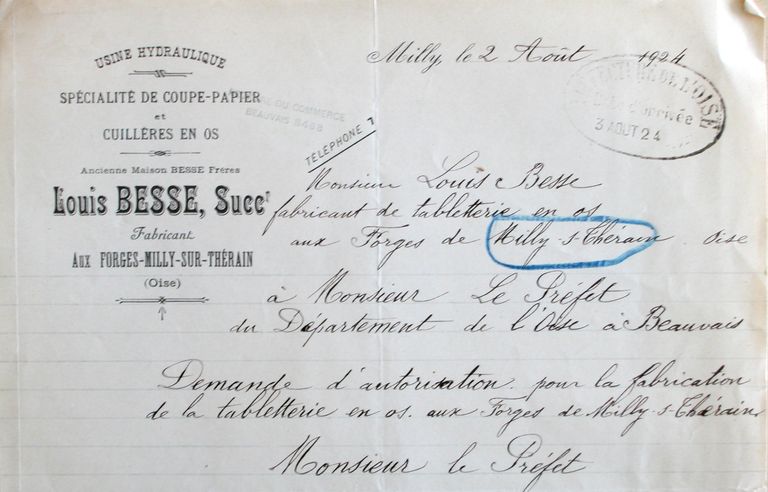 USINE HYDRAULIQUE
SPÉCIALITÉ DE COUPE-PAPIER
et
CUILLÈRES EN OS
Ancienne Maison BESSE Frères
Louis BESSE, Succr
Fabricant
Aux FORGES-MILLY-SUR-THÉRAIN
(Oise)
DU COMMERCE
BEAUVAIS
TÉLÉPHONE
Milly, le 2 Août 1924
DE L'OISE
3 AOUT 24
Monsieur Louis Besse
fabricant de tabletterie en os
aux Forges de Milly-s-Thérain Oise
à Monsieur Le Préfet
du Département de l'Oise à Beauvais
Demande d'autorisation pour la fabrication
de la tabletterie en os. aux Forges de Milly-s-Thérain
Monsieur le Préfet